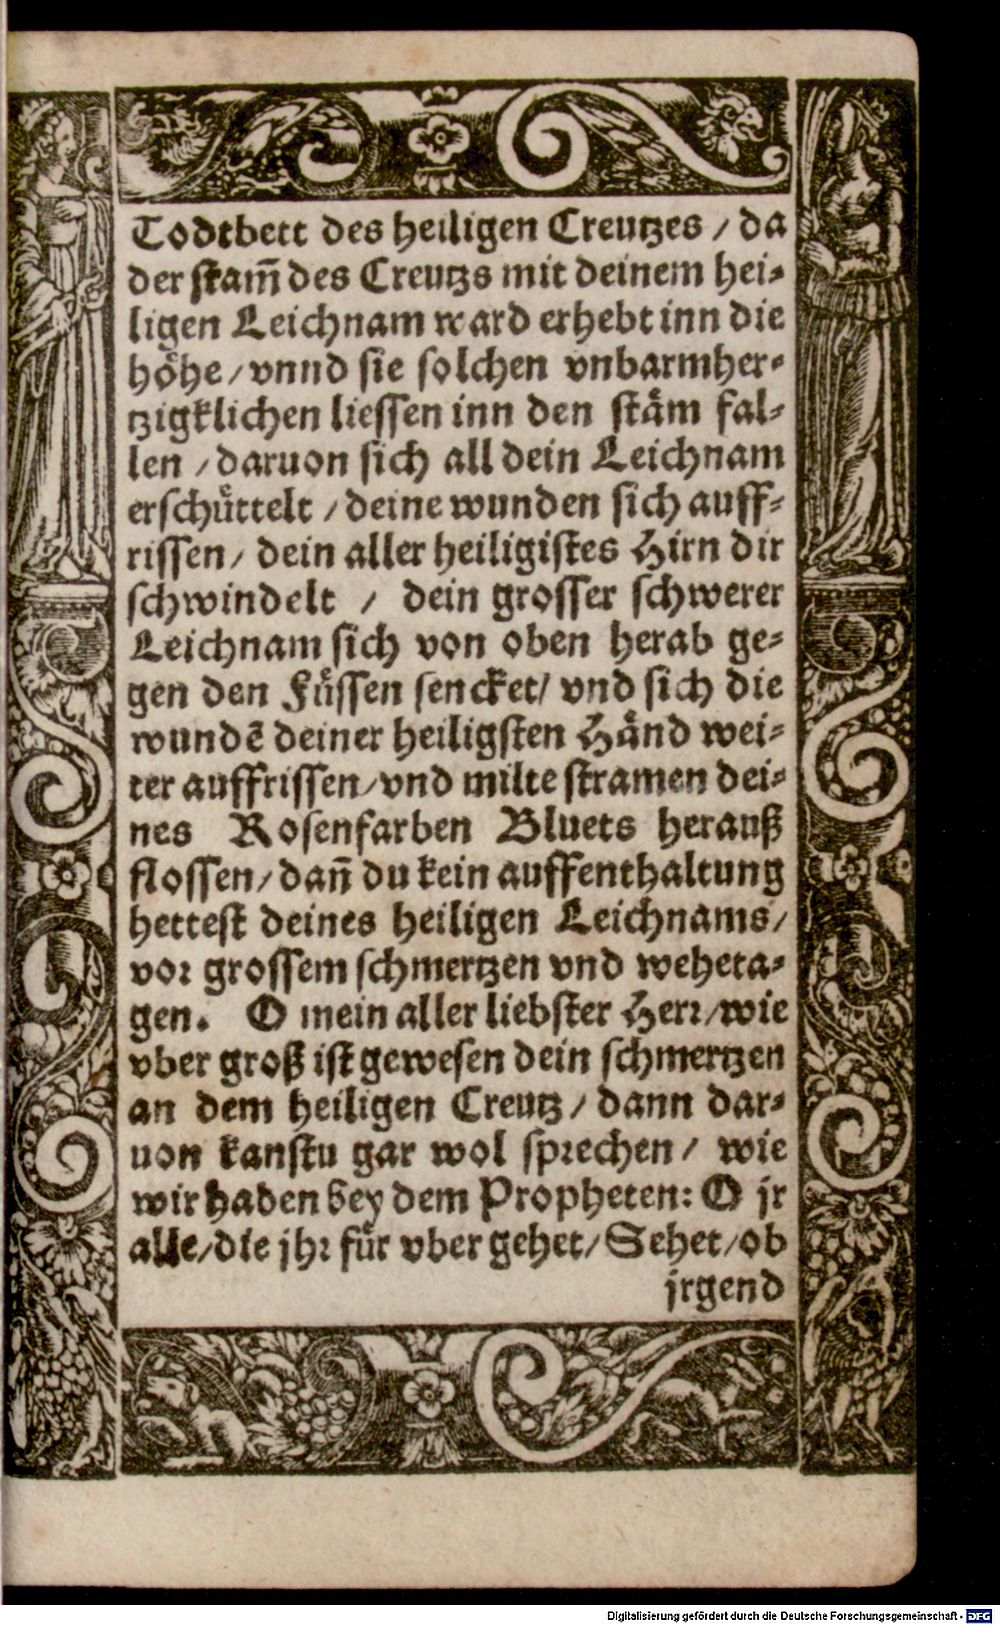 Todtbett des heiligen Creutzes / da
der stam̄ des Creutzs mit deinem hei-
ligen Leichnam ward erhebt inn die
hoͤhe / vnnd sie solchen vnbarmher-
tzigklichen liessen inn den staͤm fal-
len / daruon sich all dein Leichnam
erschuͤttelt / deine wunden sich auff-
rissen / dein aller heiligistes Hirn dir
schwindelt / dein grosser schwerer
Leichnam sich von oben herab ge-
gen den Fuͤssen sencket / vnd sich die
wundē deiner heiligsten Haͤnd wei-
ter auffrissen / vnd milte stramen dei-
nes Rosenfarben Bluets herauß
flossen / dan̄ du kein auffenthaltung
hettest deines heiligen Leichnams /
vor grossem schmertzen vnd weheta-
gen. O mein aller liebster Herr / wie
vber groß ist gewesen dein schmertzen
an dem heiligen Creutz / dann dar-
uon kanstu gar wol sprechen / wie
wir haben bey dem Propheten: O jr
alle / die jhr fuͤr vber gehet / Sehet / ob
jrgend
Digitalisierung gefördert durch die Deutsche Forschungsgemeinschaft - DFG